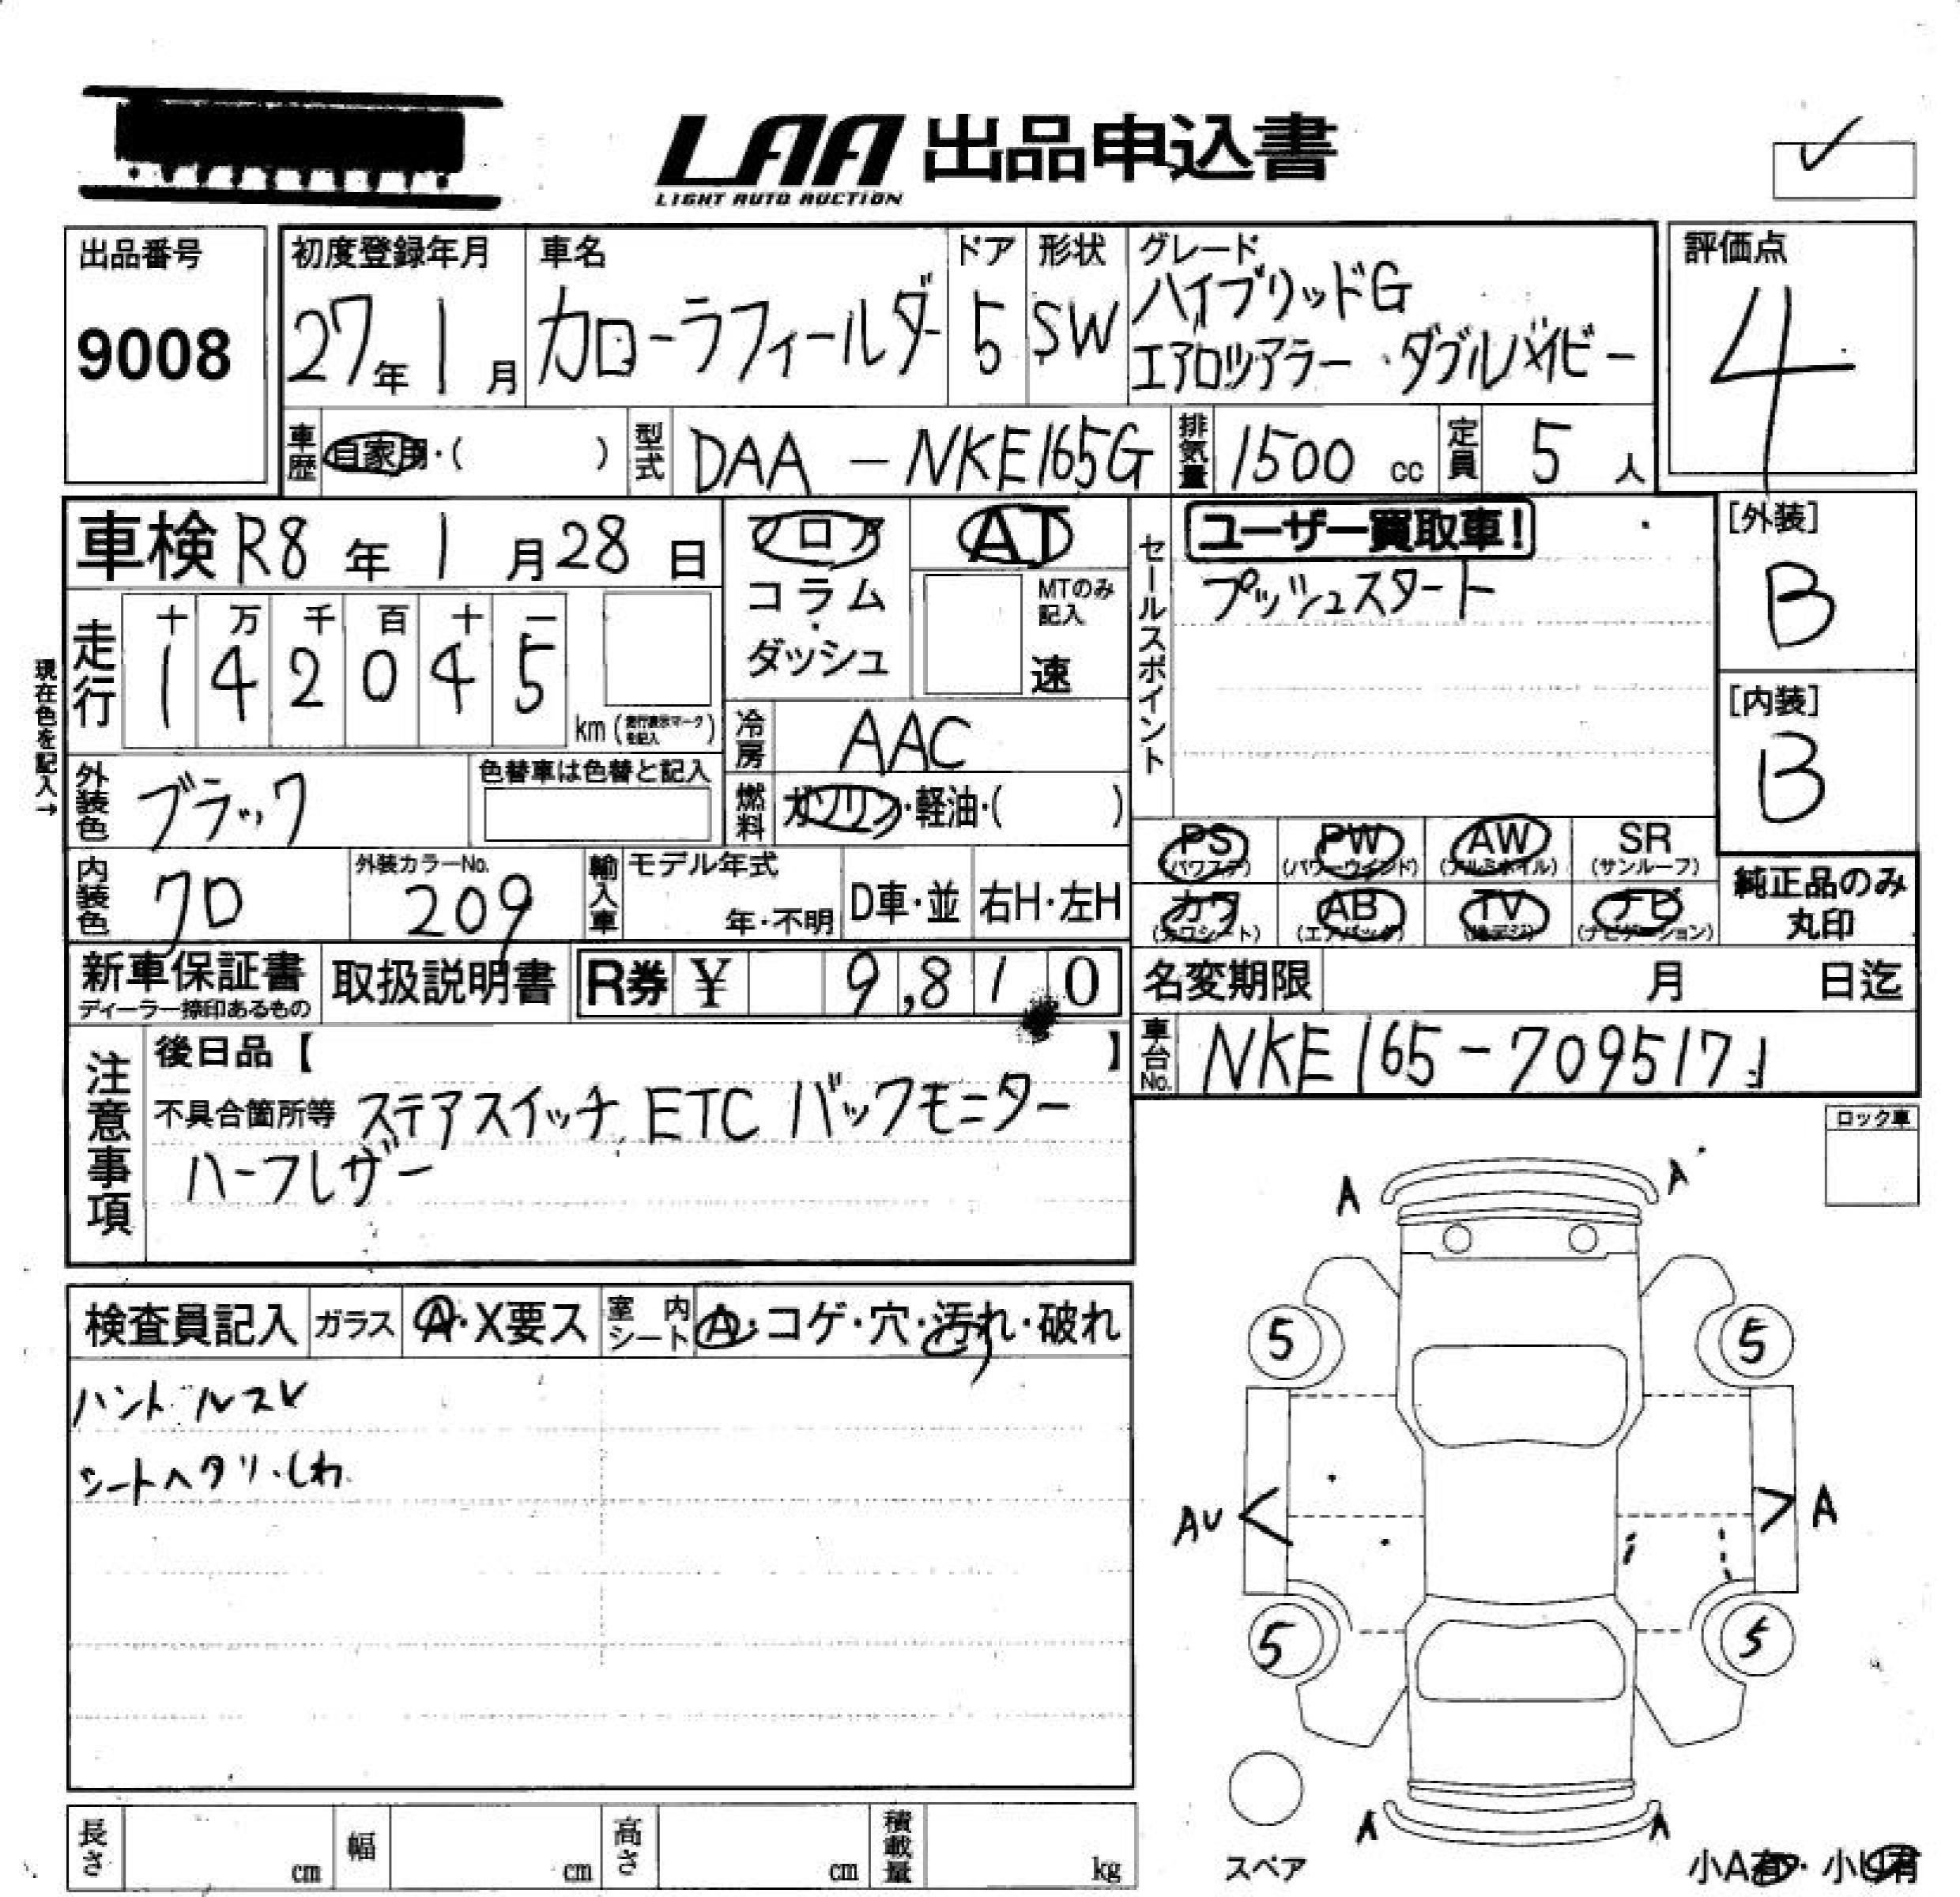 LAA 出品申込書
LIGHT AUTO AUCTION
出品番号
9008
初度登録年月
27年 1月
車名
カローラフィールダー
ドア
5
形状
SW
グレード
ハイブリッドG
エアロツアラー・ダブルバイビー
評価点
4
車歴
自家用・( )
型式
DAA-NKE165G
排気量
1500 cc
定員
5 人
車検 R8年 1月28日
フロア
コラム
・
ダッシュ
AT
MTのみ記入
速
セールスポイント
ユーザー買取車!
プッシュスタート
[外装]
B
[内装]
B
現在色を記入→
走行
十 万 千 百 十 一
1 4 2 0 4 5
km (走行表示マークを記入)
冷房
AAC
燃料
ガソリン・軽油・( )
外装色
ブラック
色替車は色替と記入
内装色
クロ
外装カラーNo.
209
輸入車
モデル年式
年・不明
D車・並
右H・左H
PS (パワステ)
PW (パワーウインド)
AW (アルミホイル)
SR (サンルーフ)
カワ (カワシート)
AB (エアバッグ)
TV (地デジ)
ナビ (ナビゲーション)
純正品のみ
丸印
新車保証書
ディーラー捺印あるもの
取扱説明書
R券 ¥ 9,810
名変期限
月 日迄
車台No.
NKE165-7095171
注意事項
後日品【 】
不具合箇所等 ステアスイッチ,ETC バックモニター
ハーフレザー
ロック車
A A
検査員記入
ガラス
A・X要ス
室内シート
A・コゲ・穴・汚れ・破れ
ハンドルスレ
シートヘタリ・しわ
5 5
AU A
5 5
A A
スペア
小A有・小U有
長さ cm
幅 cm
高さ cm
積載量 kg